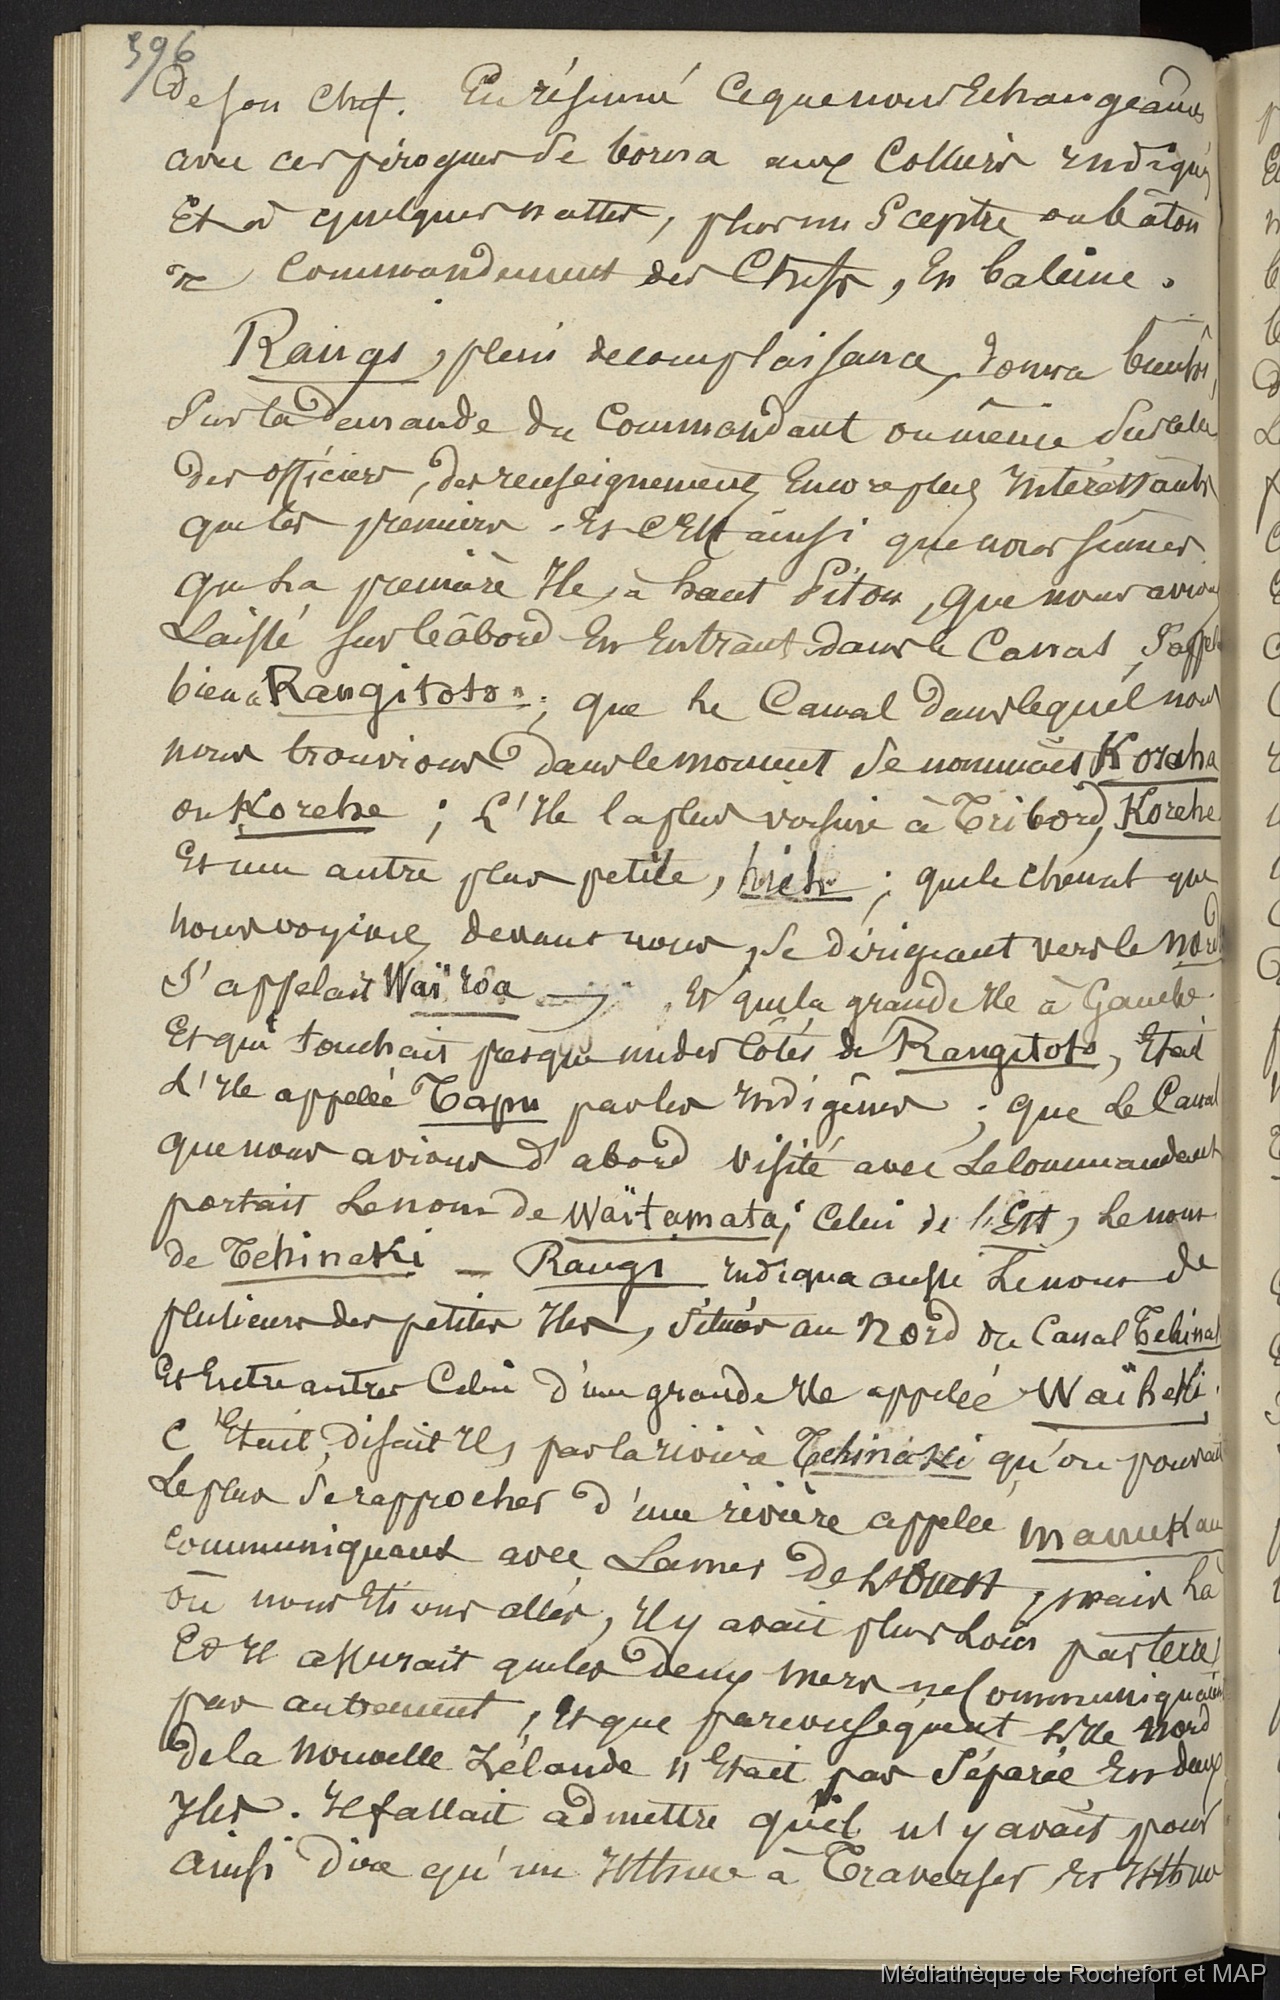 396
de son Chef. En résumé ce que nous Echangeâmes
avec ces pirogues se borna aux Colliers indigènes
Et à quelques nattes, plus un Sceptre ou bâton
de Commandement des Chefs, En baleine.
Rangi, plein de complaisance, donna bientôt,
Sur la demande du Commandant ou même Sur celle
des officiers, des renseignements Encore plus Intéressants
que les premiers. Et c'Est ainsi que nous sûmes
que La première Ile, à haut Piton, que nous avions
Laissé sur bâbord En Entrant dans le Canal, S'appelait
bien "Rangitoto"; que Le Canal dans lequel nous
nous trouvions dans le moment se nommait Koraha
ou Korehe; L'Ile la plus voisine à Tribord, Korehe
Et une autre plus petite, ; que le chenal que
nous voyions devant nous, se dirigeant vers le nord
S'appelait Waï rôa — Et que la grande Ile à Gauche
Et qui touchait presque un des côtés de Rangitoto, Etait
L'Ile appelée Tapu par les Indigènes; que Le Canal
que nous avions d'abord visité avec Le Commandant
portait Le nom de Waïtamata; Celui de l'Est, Le nom
de Tehinaki — Rangi indiqua aussi Le nom de
plusieurs des petites Iles, Situées au Nord du Canal Tehinaki
Et Entre autres Celui d'une grande Ile appelée Waïheki.
C'Etait, disait Il, par la rivière Tehinaki qu'on pouvait
Le plus Se rapprocher d'une rivière appelée Manukau
communiquant avec La mer De L'Ouest, mais Là
où nous Etions allés, Il y avait plus Loin par terre,
Et Il assurait que les deux mers ne Communiquaient
pas autrement, Et que par conséquent L'Ile Nord
de la Nouvelle Zélande n'Etait pas Séparée En deux
Iles. Il fallait admettre qu'il n'y avait pour
ainsi dire qu'un Isthme à Traverser Et Isthme
Médiathèque de Rochefort et MAP